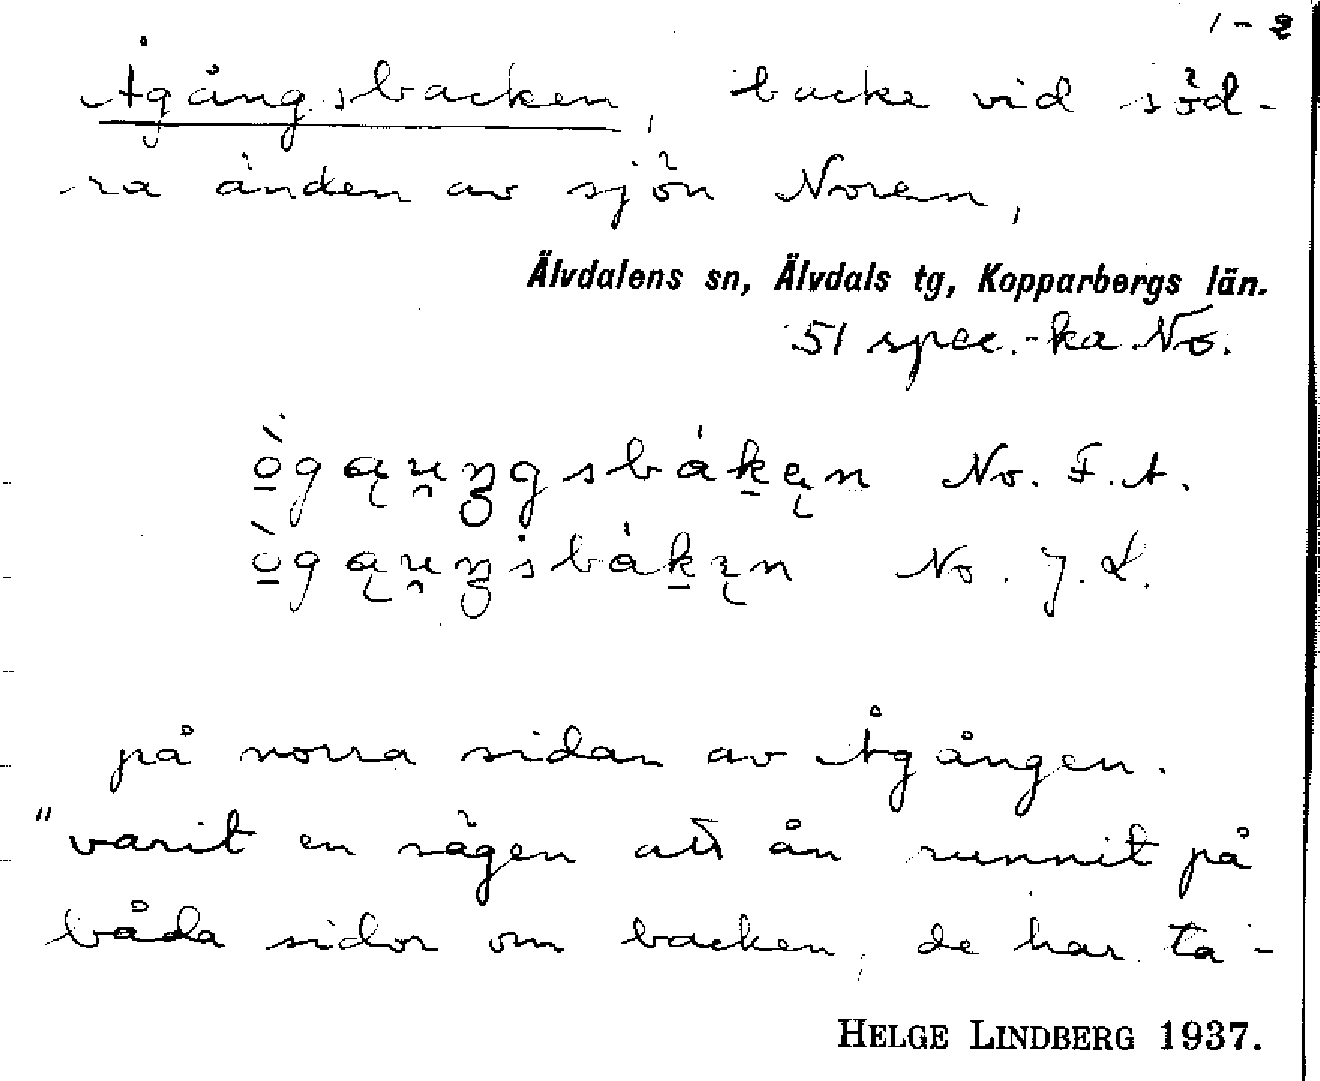 1-2
Ågångsbacken, backe vid söd-
ra änden av sjön Noren,
Älvdalens sn, Älvdals tg, Kopparbergs län.
51 spec.-ka No.
ò̱gąu̯ŋgsbáḵęn No. F. A.
ò̱gąu̯ŋsbáḵın No. J. L.
på norra sidan av Ågången.
"varit en sägen att ån runnit på
båda sidor om backen, de har ta-
HELGE LINDBERG 1937.